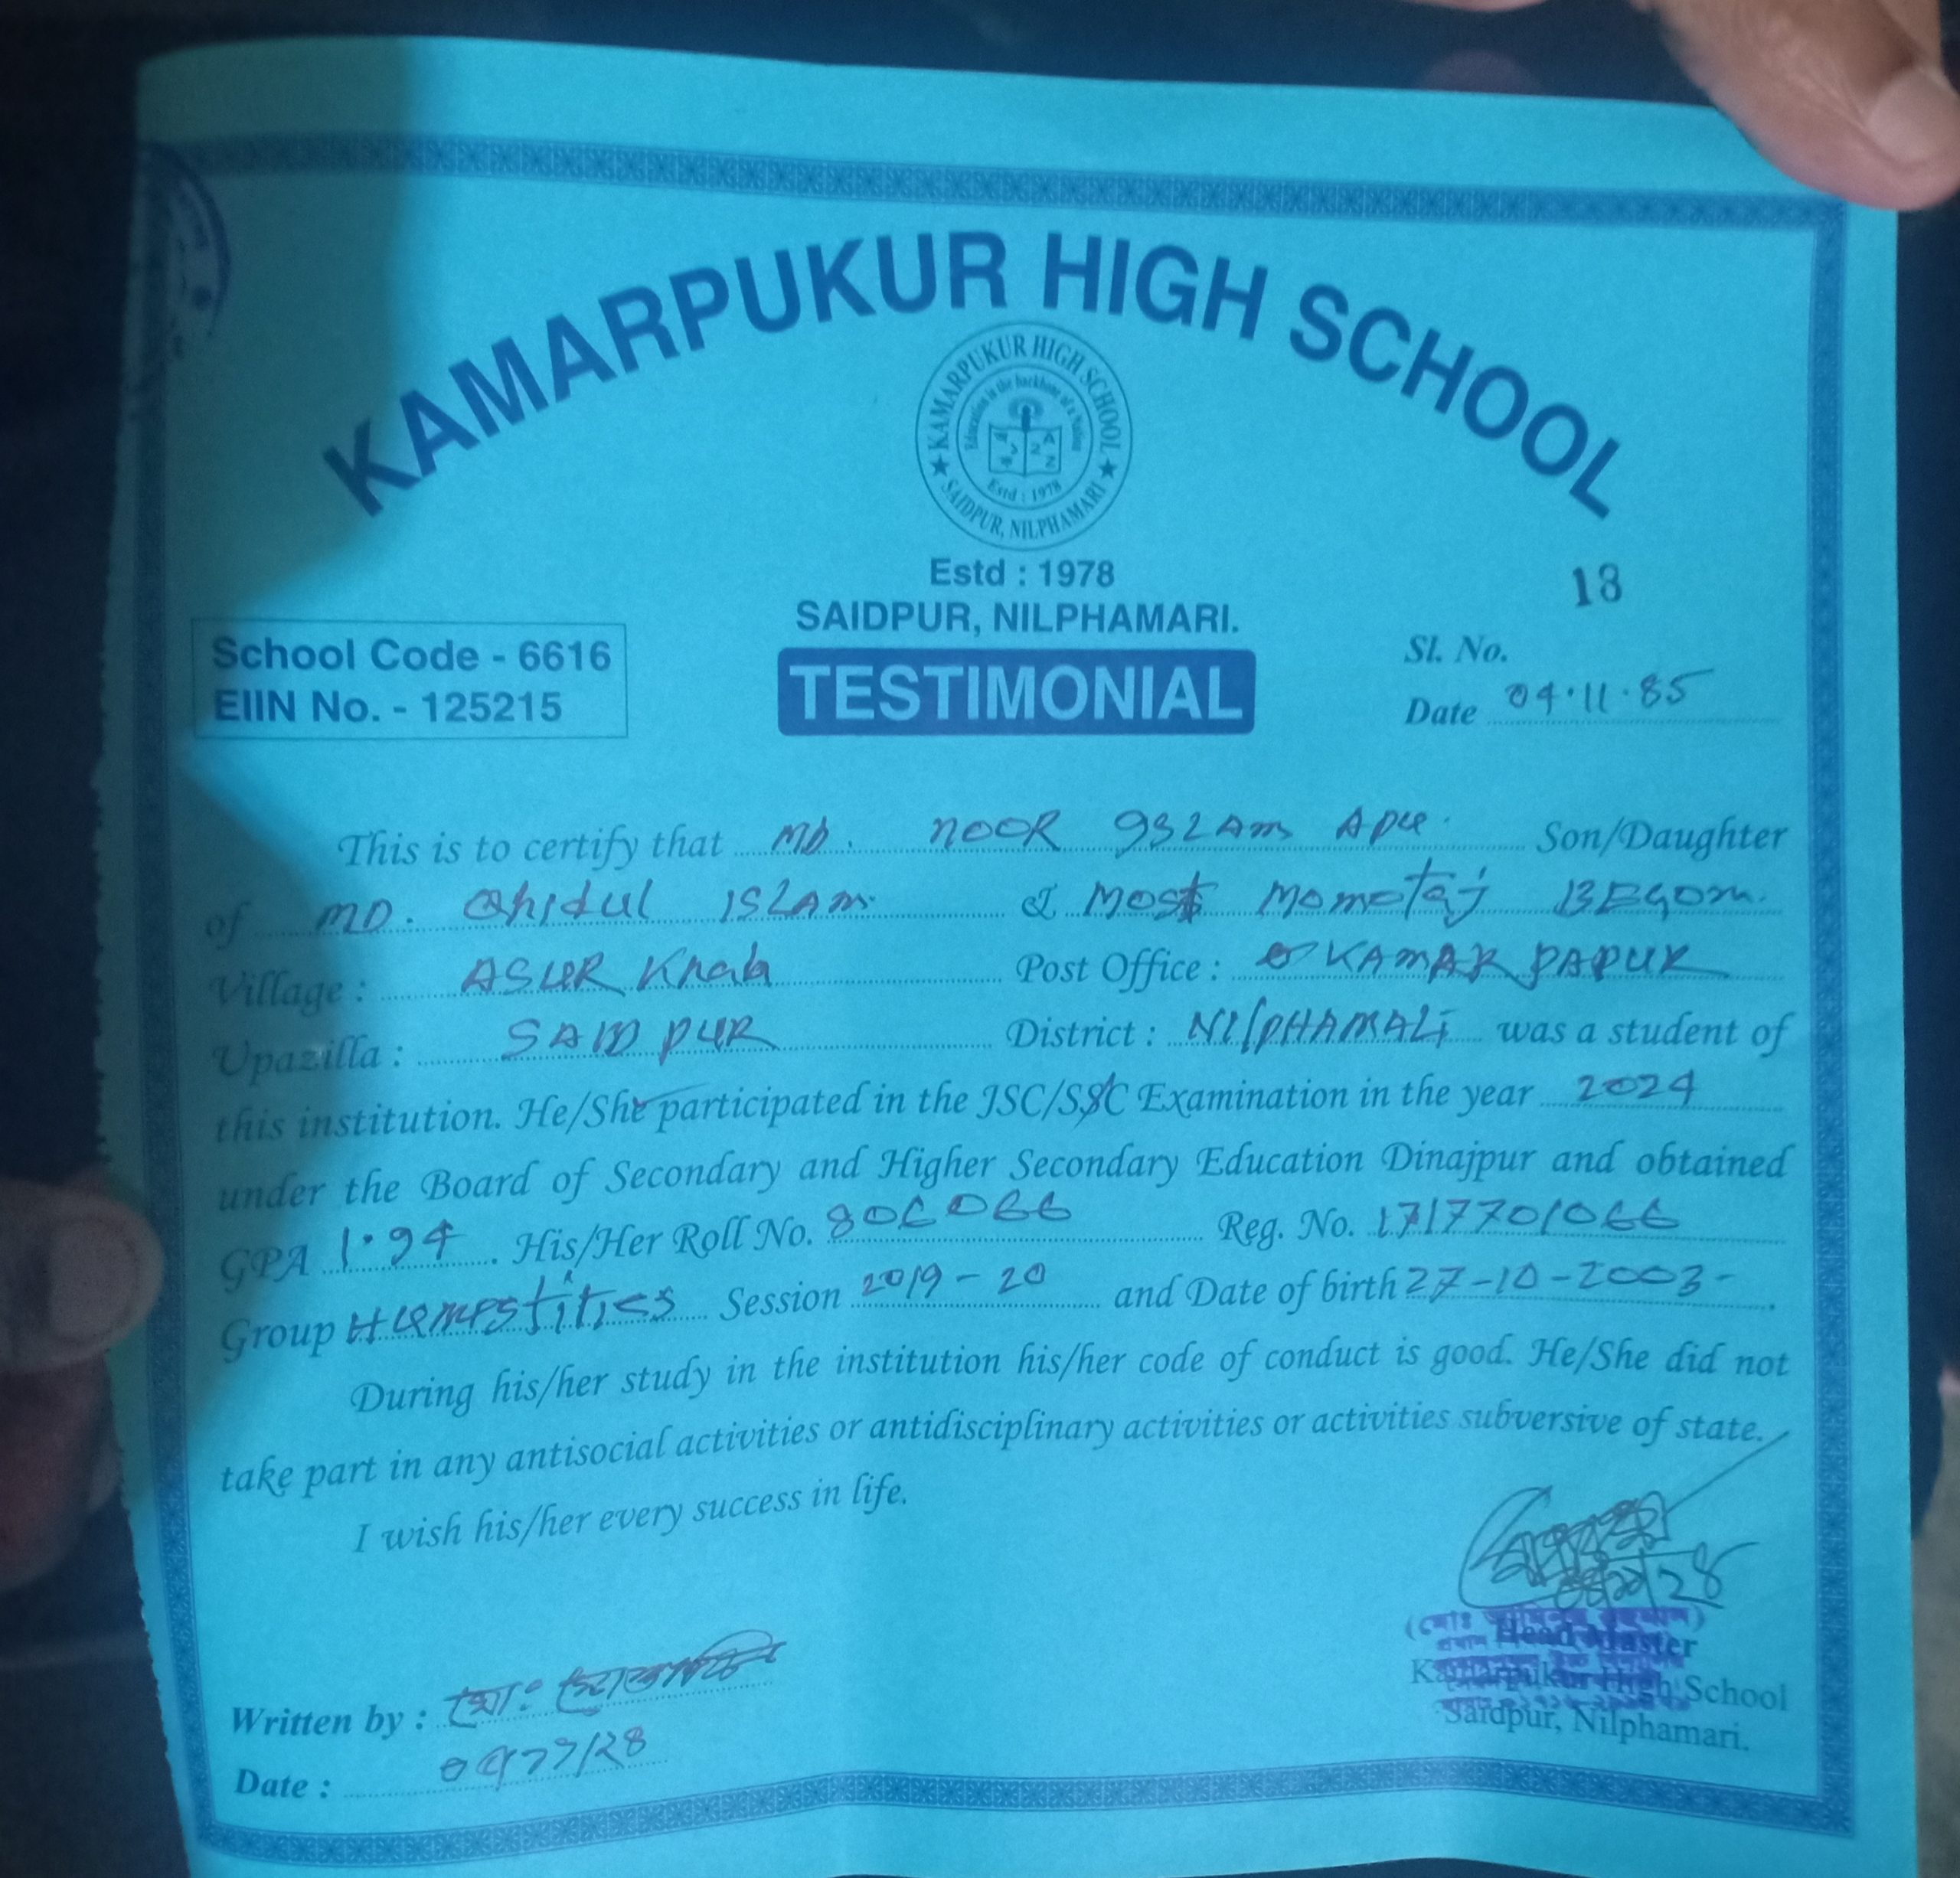 KAMARPUKUR HIGH SCHOOL
★ KAMARPUKUR HIGH SCHOOL ★
Education is the backbone of a Nation
Estd : 1978
SAIDPUR, NILPHAMARI
Estd : 1978
SAIDPUR, NILPHAMARI.
18
School Code - 6616
EIIN No. - 125215
TESTIMONIAL
Sl. No.
Date 04.11.
This is to certify that MD. NOOR Apu. Son/Daughter
of MD. ISLAm & Most Momotaj BEGOM.
Village : ASUR Khai
Post Office : KAMAR PAPUR
Upazilla : SAID PUR
District : NILPHAMALI was a student of
this institution. He/She participated in the JSC/SSC Examination in the year 2024
under the Board of Secondary and Higher Secondary Education Dinajpur and obtained
GPA 1.94. His/Her Roll No. 806066 Reg. No. 1717701066
Group Session 2019-20 and Date of birth 27-10-2003-
During his/her study in the institution his/her code of conduct is good. He/She did not
take part in any antisocial activities or antidisciplinary activities or activities subversive of state.
I wish his/her every success in life.
Written by : মো:
Date :
Head Master
Kamarpukur High School
Saidpur, Nilphamari.